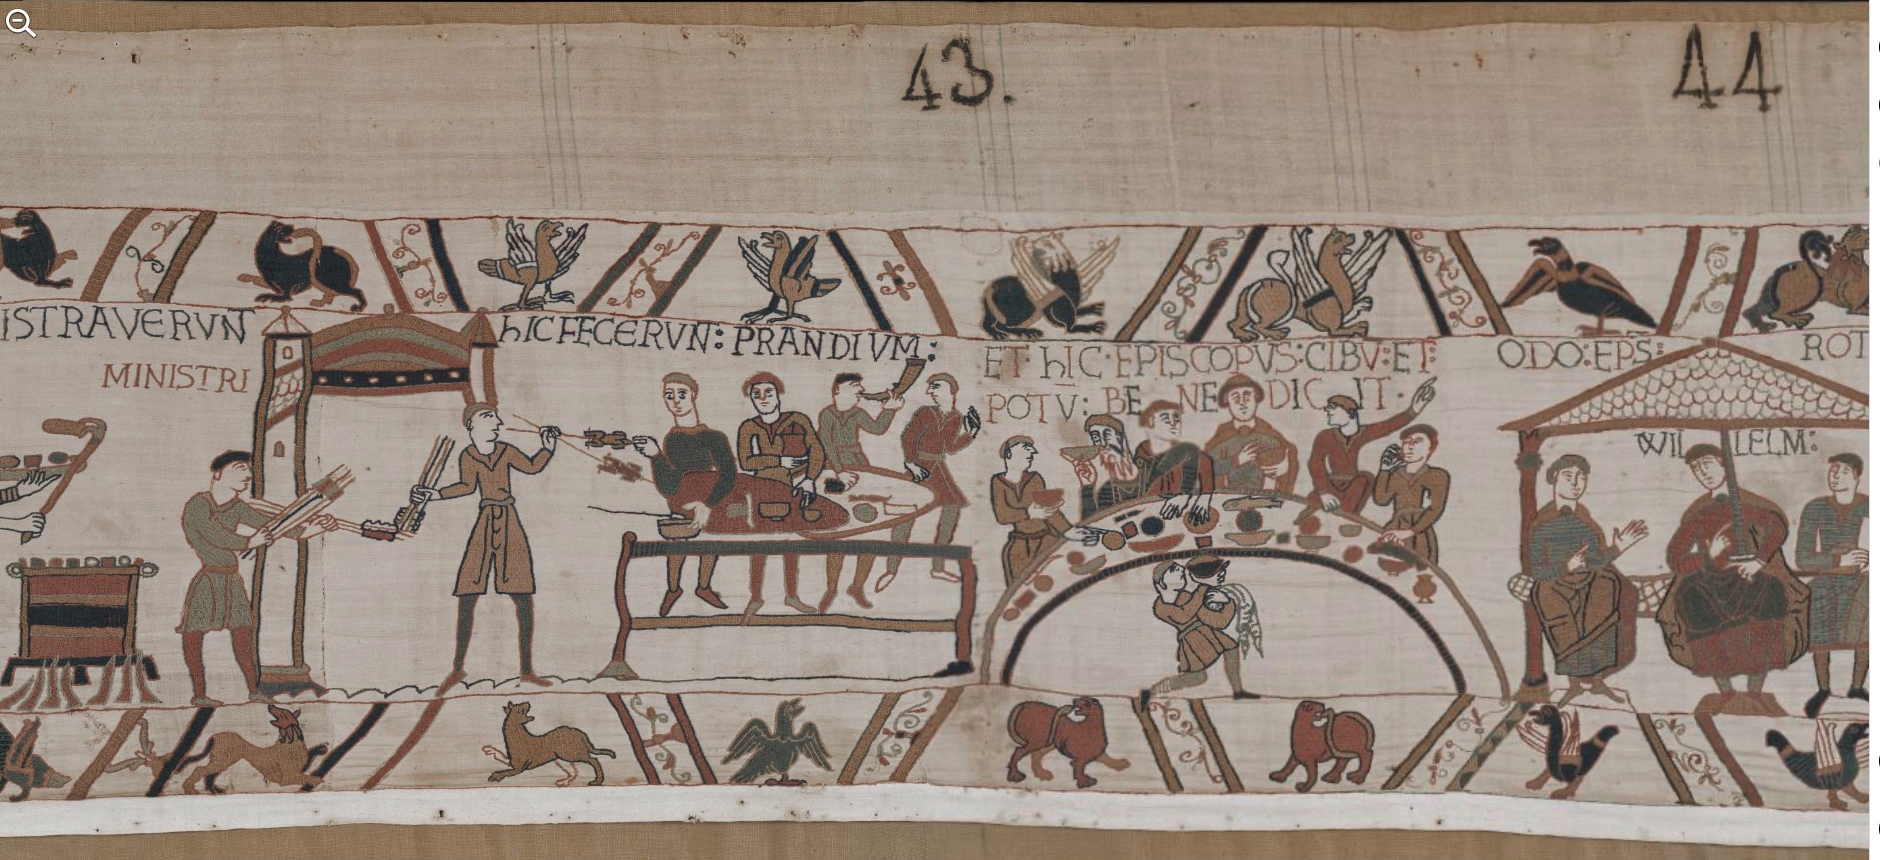 43.
44
ISTRAVERVNT
MINISTRI
hIC FECERVN: PRANDIVM:
ET·hIC·EPISCOPVS:CIBV̄:ET:
POTV̄: BENEDICIT·
ODO:EPS:
ROT
WILLELM: